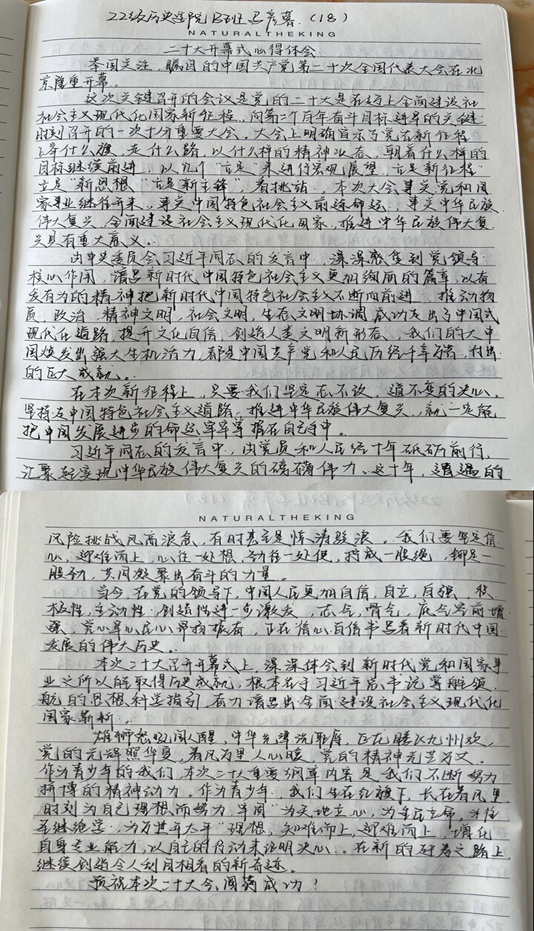 22级历史学院B班 彦春(18)
NATURALTHEKING
二十大开幕式心得体会
举国关注、瞩目的中国共产党第二十次全国代表大会在北
京隆重开幕。
这次关键召开的会议是党的二十大是在迈上全面建设社
会主义现代化国家新征程、向第二个百年奋斗目标进军的关键
时刻召开的一次十分重要大会。大会上明确宣示了党在新征程
上举什么旗、走什么路、以什么样的精神状态、朝着什么样的
目标继续前进,以几个“立足”来进行宏观展望,立足“新征程”
立足“新思想”立足“新主线”,看挑战。本次大会事关党和国
家事业继往开来,事关中国特色社会主义前途命运,事关中华民族
伟大复兴,全面建设社会主义现代化国家,推进中华民族伟大复
兴具有重大意义。
由中央委员会习近平同志的发言中,深深感觉到党领导
核心作用,谱写新时代中国特色社会主义更加绚丽的篇章,以奋
发有为的精神把新时代中国特色社会主义不断向前进。推动物
质、政治、精神文明、社会文明、生态文明协调,成功走出了中国式
现代化道路,提升文化自信,创造人类文明新形态。我们的大中
国焕发出强大生机活力,都是中国共产党和人民历经千辛万苦、付出
的巨大成就。
在本次新征程上,只要我们坚定志不改、道不变的决心,
坚持走中国特色社会主义道路,推进中华民族伟大复兴,就一定能
把中国发展进步的命运牢牢掌握在自己手中。
习近平同志的发言中,由党员和人民经十年砥砺前行,
汇聚起实现中华民族伟大复兴的磅礴伟力。这十年,遭遇的
NATURALTHEKING
风险挑战风高浪急,有时甚至是惊涛骇浪。我们要坚定信
心、迎难而上,心往一处想、劲往一处使,拧成一股绳,铆足一
股劲,共同凝聚出奋斗的力量。
当今,在党的领导下,中国人民更加自信、自立、自强、积
极性、主动性、创造性进一步激发,志气、骨气、底气空前增
强,党心军心民心昂扬振奋,正在信心百倍书写着新时代中国
发展的伟大历史。
本次二十大召开开幕式上,深深体会到新时代党和国家事
业之所以能取得历史成就,根本在于习近平总书记掌舵领
航的思想科学指引,奋力谱写出全面建设社会主义现代化
国家崭新。
雄狮怒吼国人醒,中华光泽洗耻辱,正在腾飞九州欢,
党的光辉照华夏,春风万里人心暖,党的精神光芒万丈。
作为青少年的我们,本次二十大重要纲举内容是我们不断努力
拼搏的精神动力。作为青少年,我们生在红旗下,长在春风里,
时刻为自己理想而努力,牢固“为天地立心,为生民立命,为往
圣继绝学,为万世开太平”理想,知难而上,迎难而上,增化
自身专业能力,以自己的行动来证明决心,在新的研考之路上
继续创造令人刮目相看的新奇迹。
最祝本次二十大会圆满成功!